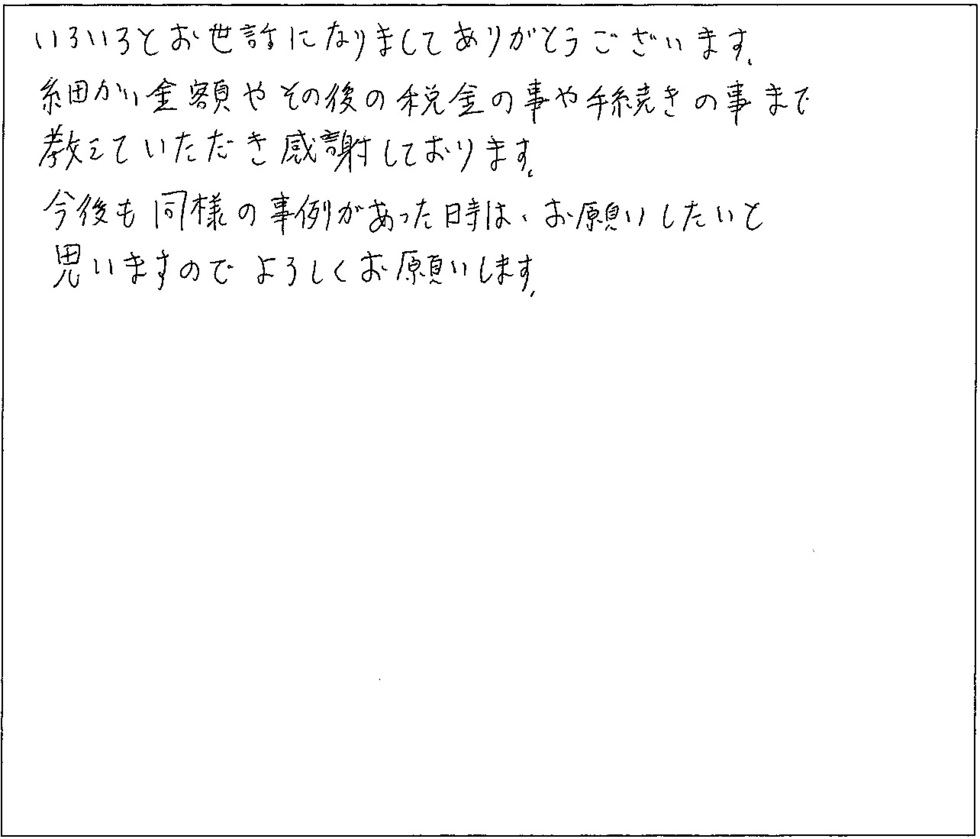 いろいろとお世話になりましてありがとうございます。
細かい金額やその後の税金の事や手続きの事まで
教えていただき感謝しております。
今後も同様の事例があった時は、お願いしたいと
思いますのでよろしくお願いします。